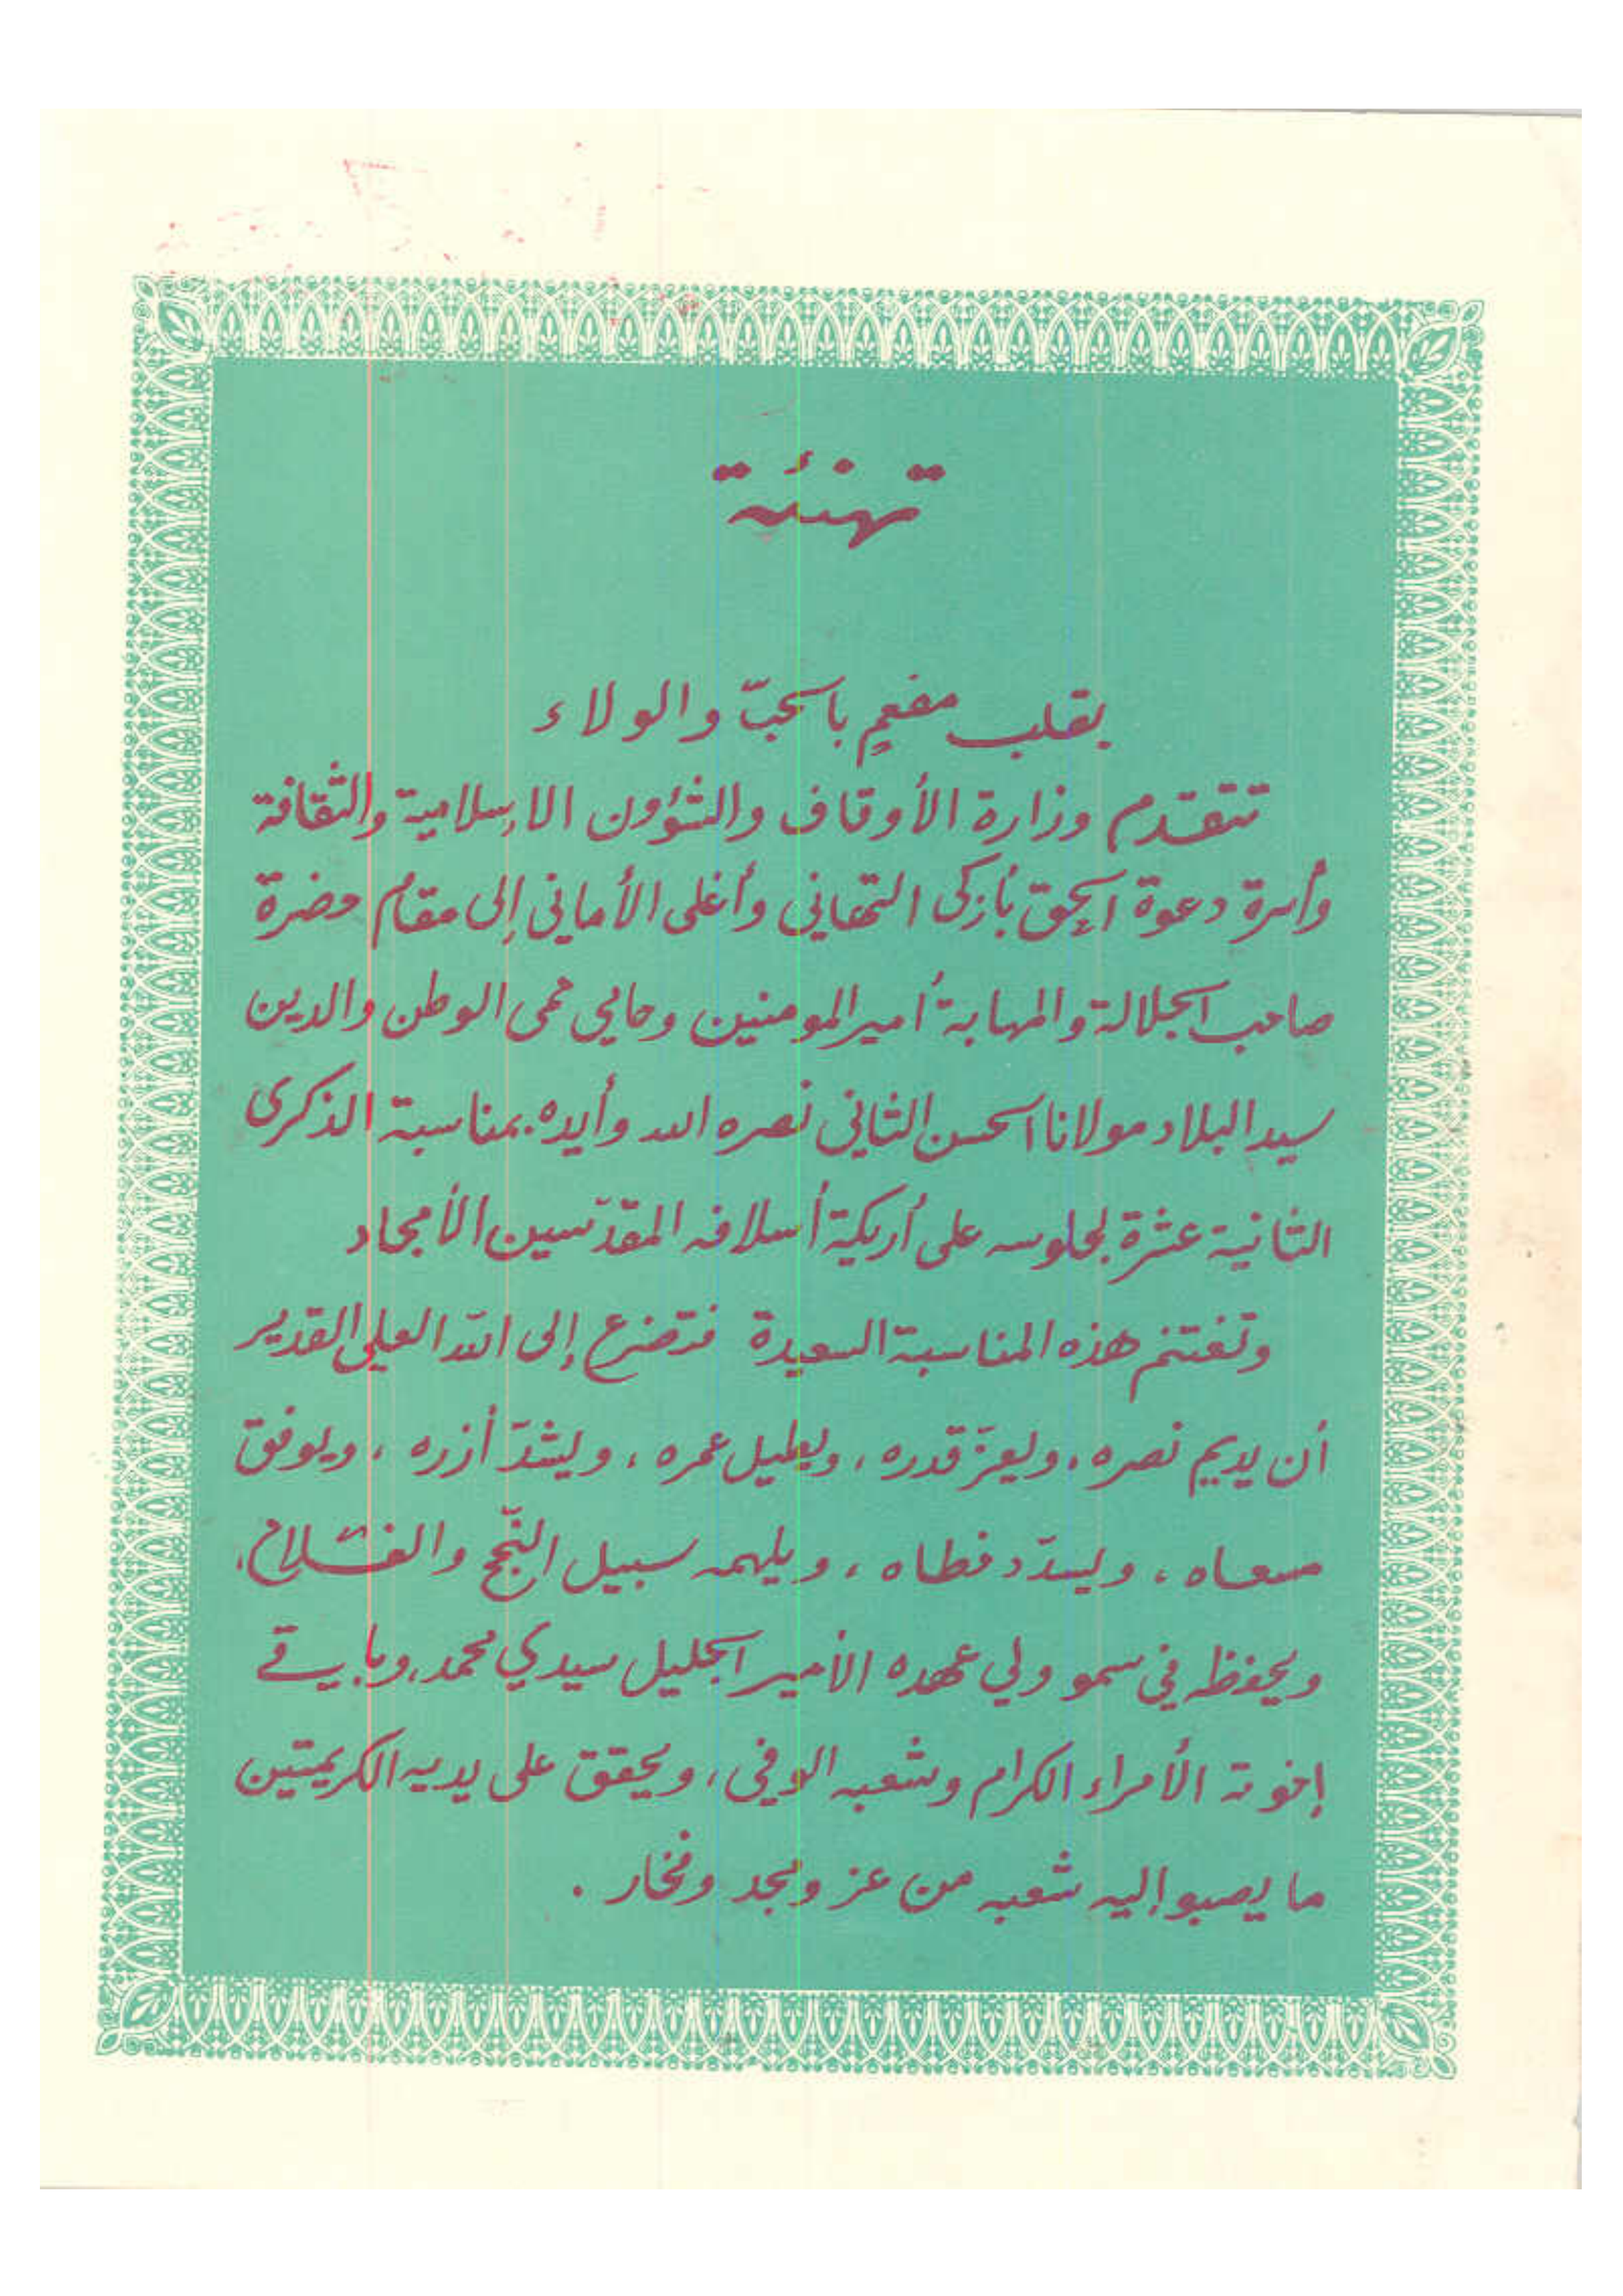 تهنئة
بقلب مفعمٍ بالحبّ والولاء
تتقدم وزارة الأوقاف والشؤون الإسلامية والثقافة
وأسرة دعوة الحق بأزكى التهاني وأغلى الأماني إلى مقام حضرة
صاحب الجلالة والمهابة أمير المومنين وحامي حمى الوطن والدين
سيد البلاد مولانا الحسن الثاني نصره الله وأيده. بمناسبة الذكرى
الثانية عشرة لجلوسه على أريكة أسلافه المقدّسين الأمجاد
وتغتنم هذه المناسبة السعيدة فتضرع إلى الله العلي القدير
أن يديم نصره، ويعزّ قدره، ويطيل عمره، ويشدّ أزره، ويوفق
مسعاه، ويسدّد خطاه، ويلهمه سبيل النّجح والفلاح،
ويحفظه في سمو ولي عهده الأمير الجليل سيدي محمد، وباقي
إخوته الأمراء الكرام وشعبه الوفي، ويحقق على يديه الكريمتين
ما يصبو إليه شعبه من عز ومجد وفخار.